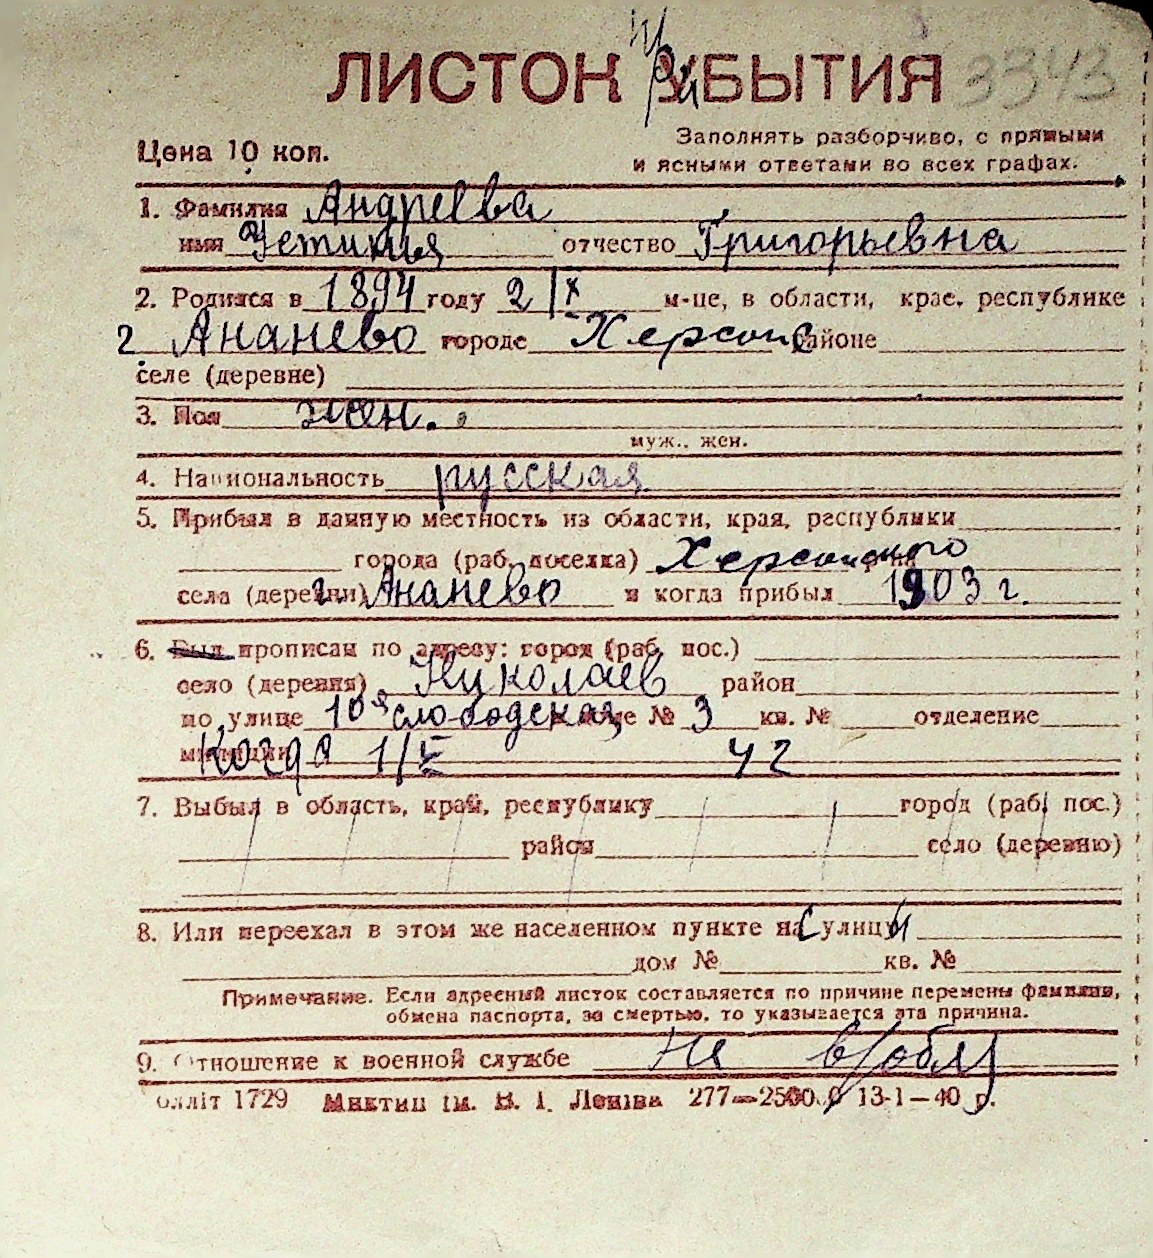 ЛИСТОК ПРИБЫТИЯ 3343
Заполнять разборчиво, с прямыми
Цена 10 коп. и ясными ответами во всех графах.
1. Фамилия Андреева
имя отчество Григорьевна
2. Родился в 1894 году 2/IX м-це, в области, крае, республике
г. Ананьево городе Херсонс районе
селе (деревне)
3. Пол жен.
муж., жен.
4. Национальность русская
5. Прибыл в данную местность из области, края, республики
города (раб. поселка) Херсонского
села (деревни) г. Ананьево и когда прибыл 1903 г.
6. Был прописан по адресу: город (раб. пос.)
село (деревня) Николаев район
по улице 10я слободская доме № 3 кв. № отделение
милиции Когда 1/V 42
7. Выбыл в область, край, республику город (раб. пос.)
район село (деревню)
8. Или переехал в этом же населенном пункте с улицы
дом № кв. №
Примечание. Если адресный листок составляется по причине перемены фамилии,
обмена паспорта, за смертью, то указывается эта причина.
9. Отношение к военной службе не в/обяз
олліт 1729 ім. В. І. Леніна 13-1—40 р.